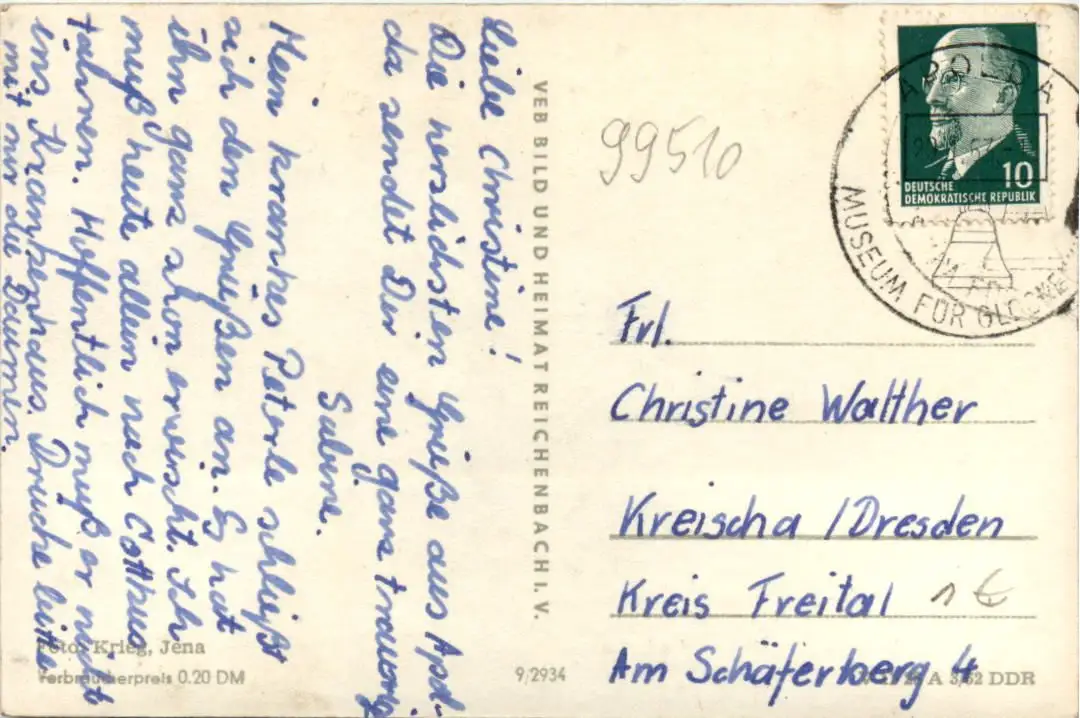 Liebe Christine!
Die herzlichsten Grüße aus Apol-
da sendet Dir eine ganz traurige
Sabine.
Mein krankes Peterle schließt
sich den Grüßen an. Es hat
ihn ganz schön erwischt. Ich
muß heute allein nach Cottbus
fahren. Hoffentlich muß er nicht
ins Krankenhaus. Drücke bitte
mit mir die Daumen.
Foto: Krieg, Jena
Verbraucherpreis 0.20 DM
VEB BILD UND HEIMAT REICHENBACH I. V.
9/2934
99510
APOLDA
MUSEUM FÜR GLOCKEN
10
DEUTSCHE
DEMOKRATISCHE REPUBLIK
Frl.
Christine Walther
Kreischa / Dresden
Kreis Freital
1 €
Am Schäferberg 4
A 3/62 DDR